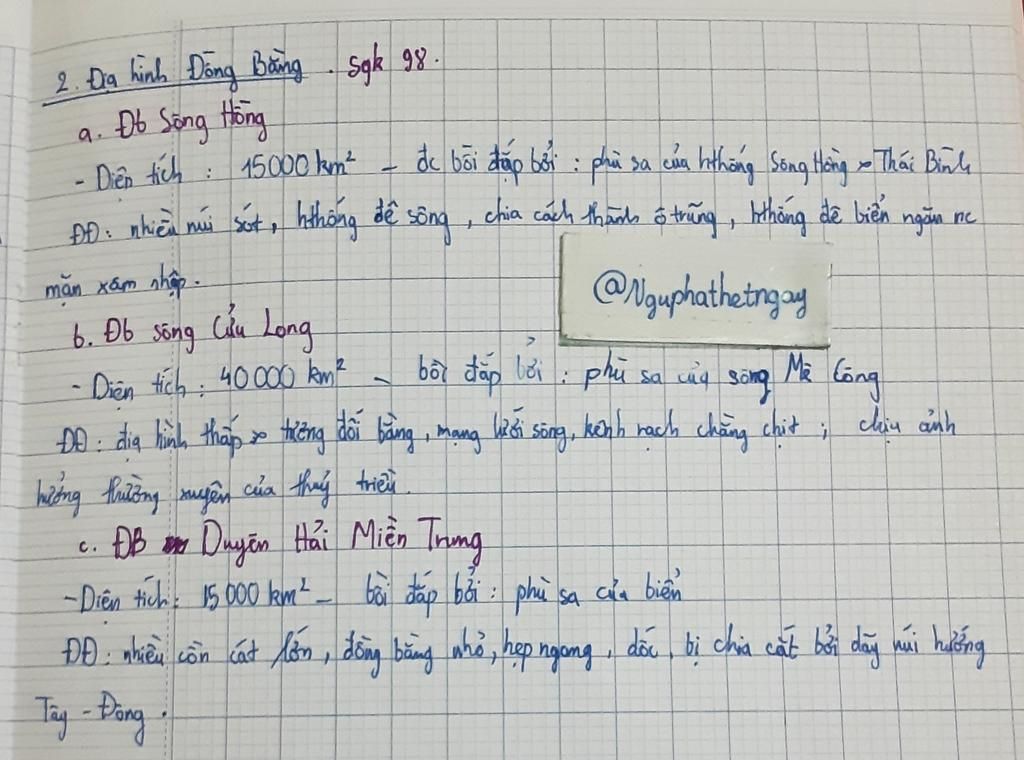 2. Địa hình Đồng Bằng. Sgk 98.
a. Đb Sông Hồng
- Diện tích: 15000 km² - đc bồi đắp bởi: phù sa của hthống Sông Hồng Thái Bình
ĐĐ: nhiều núi sót, hthống đê sông, chia cách thành ô trũng, hthống đê biển ngăn nc
mặn xâm nhập.
@Nguphathetngay
b. Đb sông Cửu Long
- Diện tích: 40 000 km² - bồi đắp bởi: phù sa của sông Mê Công
ĐĐ: địa hình thấp tương đối bằng, mạng lưới sông, kênh rạch chằng chịt; chịu ảnh
hưởng thường xuyên của thuỷ triều.
c. ĐB Duyên Hải Miền Trung
- Diện tích: 15 000 km² - bồi đắp bởi: phù sa của biển
ĐĐ: nhiều cồn cát lớn, đồng bằng nhỏ, hẹp ngang, dốc, bị chia cắt bởi dãy núi hướng
Tây - Đông.